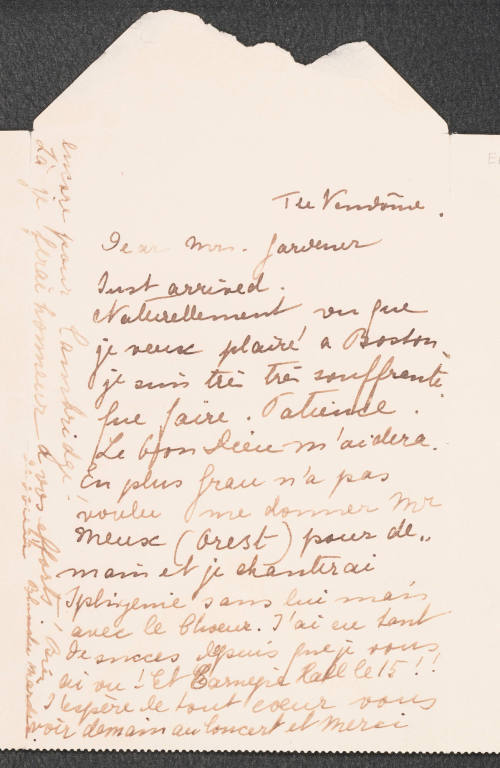 The Vendôme.
Dear Mrs. Gardener
Just arrived.
Naturellement vu que
je veux plaire a Boston
je suis très très souffrente
Que faire. Patience.
Le bon Dieu m'aidera.
En plus Grau n'a pas
voulu me donner Mr
Meux (Orest) pour de..
main et je chanterai
Iphigenie sans lui mais
avec le Choeur. J'ai eu tant
de succes depuis que je vous
ai vu! Et Carnegie Hall le 15!!
J'espère de tout coeur vous
voir demain au Concert et merci
encore pour Cambridge!
Là je ferai honneur à vos efforts!